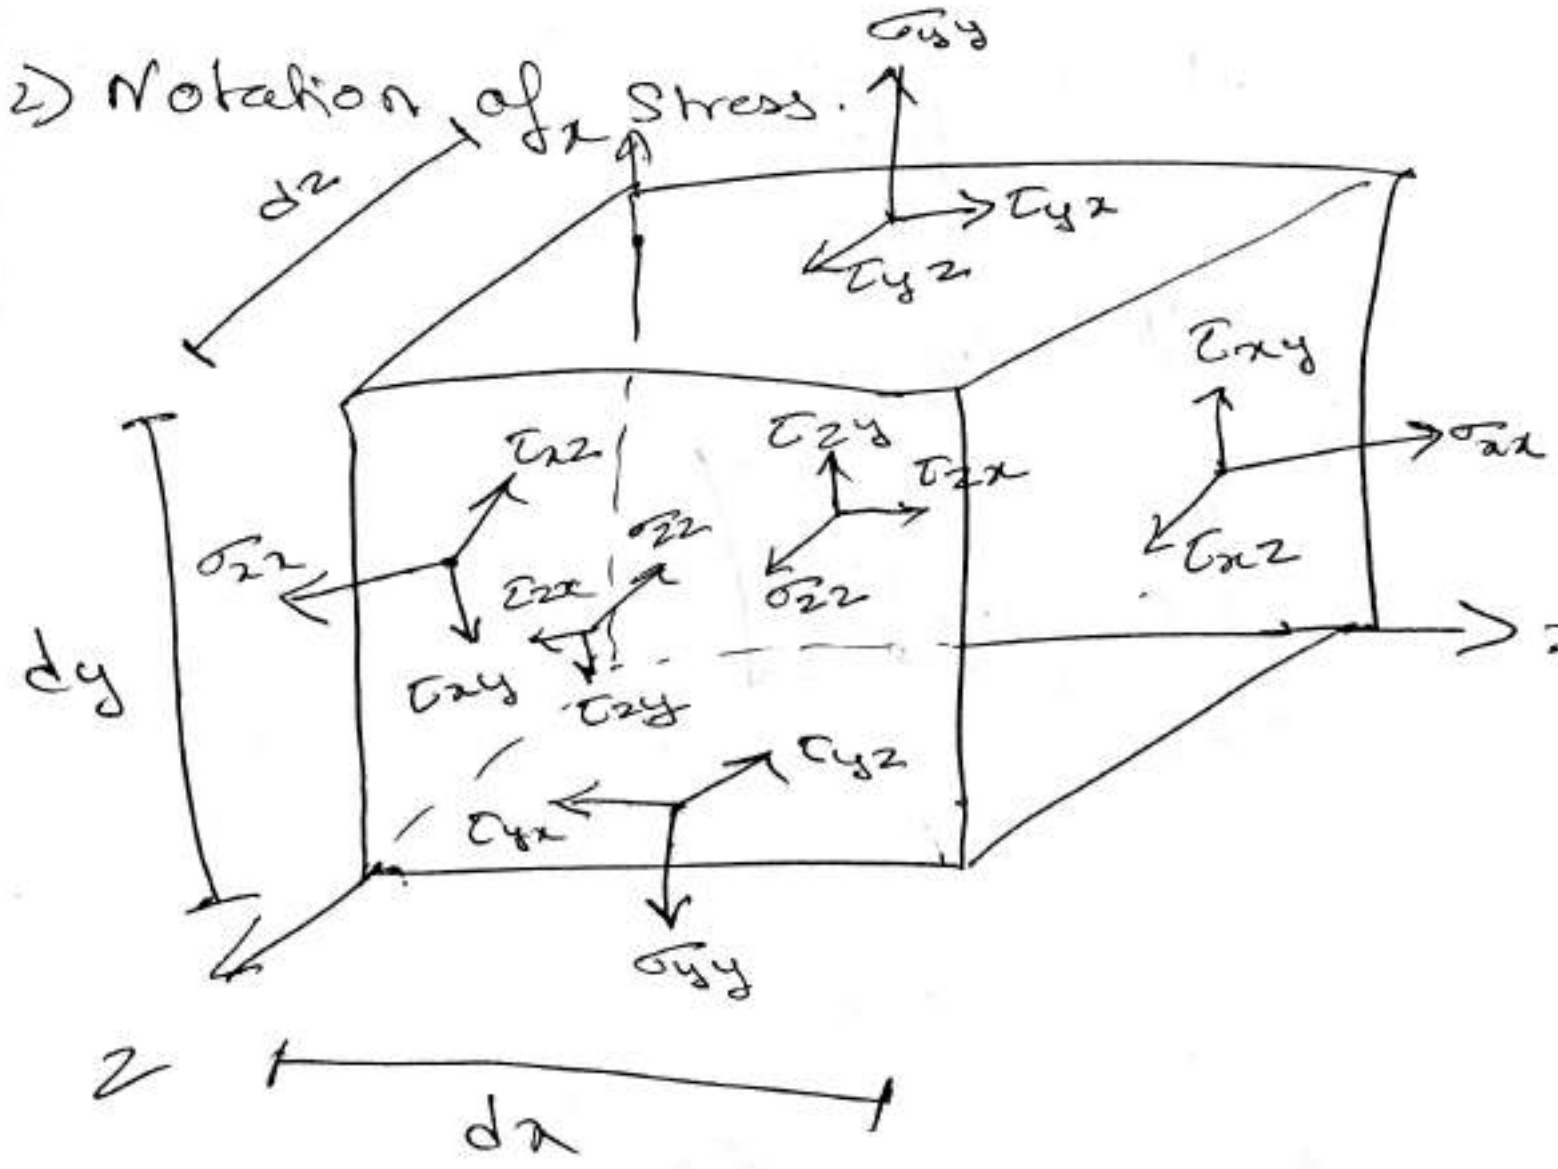 2) Notation of Stress.
σyy
x
dz
τyx
τyz
τxy
σxx
τxz
τxz
τzy
τzx
σzz
σxx
τzx
σzz
dy
τxy
τzy
τyz
τyx
σyy
z
dx